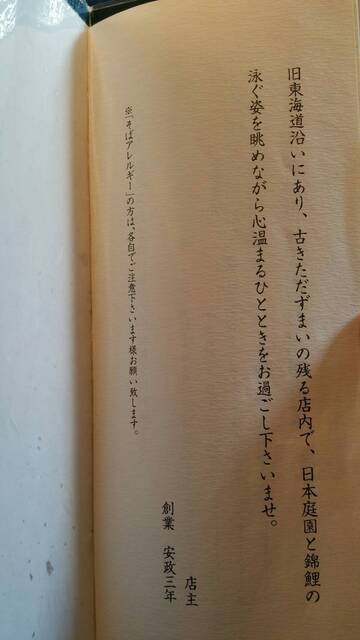 旧東海道沿いにあり、古きただずまいの残る店内で、日本庭園と錦鯉の
泳ぐ姿を眺めながら心温まるひとときをお過ごし下さいませ。
店主
創業 安政三年
※「そばアレルギー」の方は、各自でご注意下さいます様お願い致します。